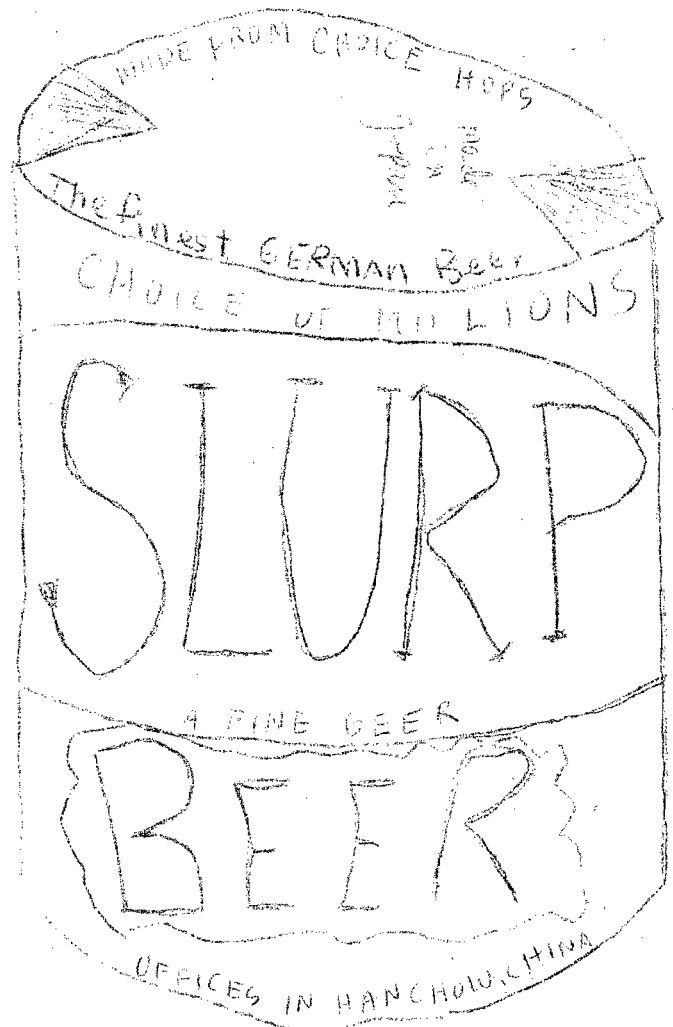 MADE FROM CHOICE HOPS
Made
in
Japan
The finest GERMAN Beer
CHOICE OF MILLIONS
SLURP
A FINE BEER
BEER
OFFICES IN HANCHOW, CHINA